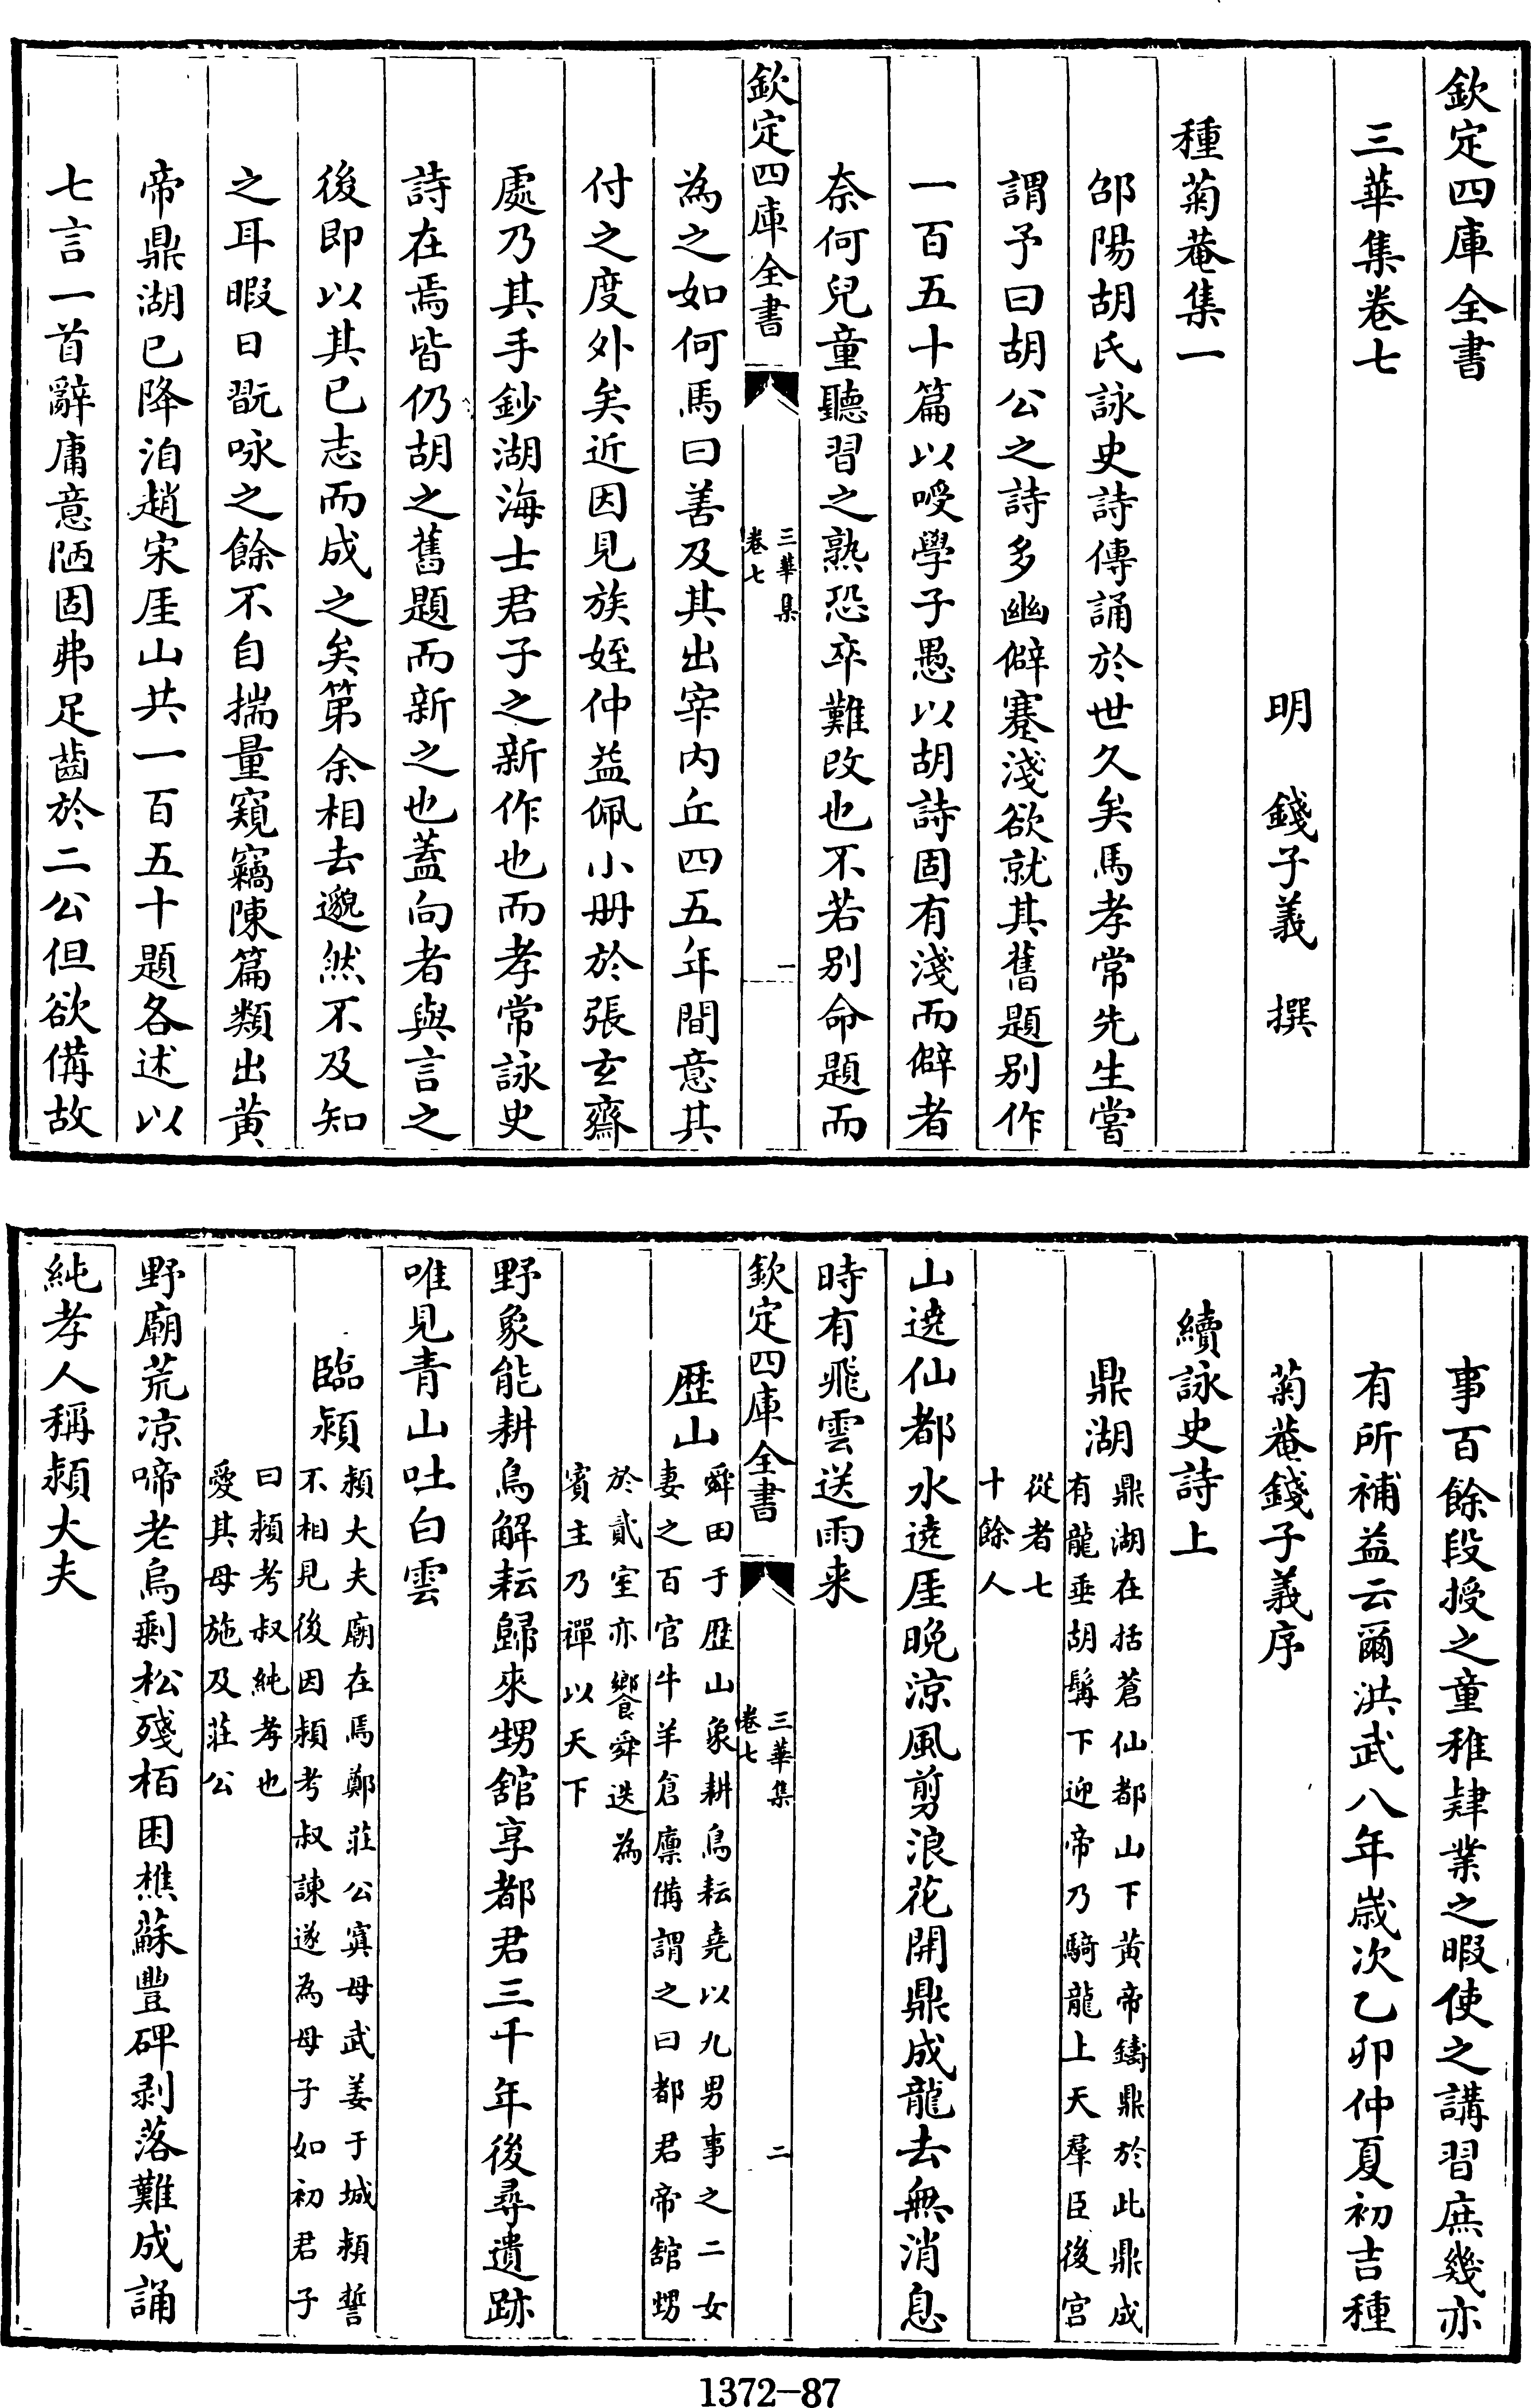 欽定四庫全書
三華集卷七
明　錢子義　撰
種菊菴集一
邵陽胡氏詠史詩傳誦於世久矣馬孝常先生嘗
謂予曰胡公之詩多幽僻蹇淺欲就其舊題别作
一百五十篇以嘤學子愚以胡詩固有淺而僻者
奈何兒童聽習之熟恐卒難改也不若别命題而
欽定四庫全書
三華集
卷七
一
為之如何馬曰善及其出宰内丘四五年間意其
付之度外矣近因見族姪仲益佩小冊於張玄齋
處乃其手鈔湖海士君子之新作也而孝常詠史
詩在焉皆仍胡之舊題而新之也蓋向者與言之
後即以其已志而成之矣第余相去邈然不及知
之耳暇日翫咏之餘不自揣量窺竊陳篇類出黄
帝鼎湖已降洎趙宋厓山共一百五十題各述以
七言一首辭庸意陋固弗足齒於二公但欲備故
事百餘段授之童稚肄業之暇使之講習庶幾亦
有所補益云爾洪武八年歲次乙卯仲夏初吉種
菊菴錢子義序
續詠史詩上
鼎湖
鼎湖在括蒼仙都山下黄帝鑄鼎於此鼎成
有龍垂胡髯下迎帝乃騎龍上天羣臣後宫
從者七
十餘人
山遶仙都水遶厓晚涼風剪浪花開鼎成龍去無消息
時有飛雲送雨来
欽定四庫全書
三華集
卷七
二
歴山
舜田于歴山象耕鳥耘堯以九男事之二女
妻之百官牛羊倉廩備謂之曰都君帝舘甥
於貳室亦饗舜迭為
賓主乃禪以天下
野象能耕鳥解耘歸來甥舘享都君三千年後尋遺跡
唯見青山吐白雲
臨潁
潁大夫廟在焉鄭莊公寘母武姜于城潁誓
不相見後因潁考叔諫遂為母子如初君子
曰潁考叔純孝也
愛其母施及莊公
野廟荒凉啼老烏剩松殘栢困樵蘇豐碑剥落難成誦
純孝人稱潁大夫
1372-87